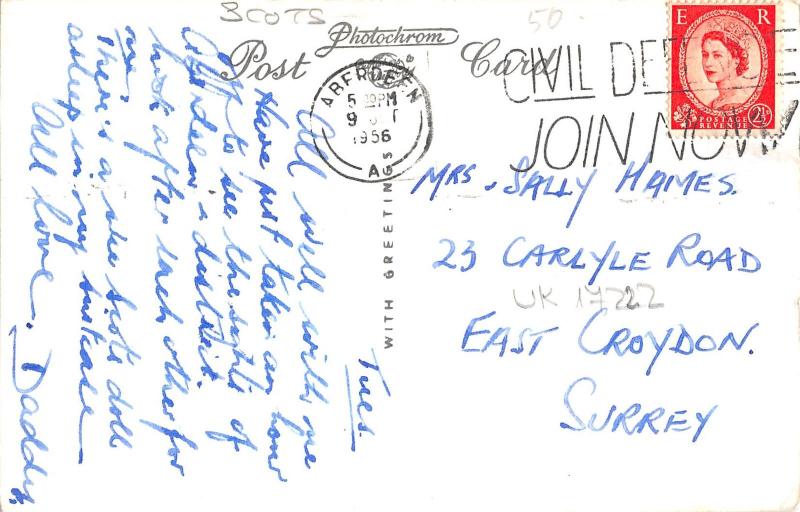 SCOTS
50
Photochrom
Post Card
ABERDEEN
5 PM
9 OCT
1956
A
CIVIL DEFENCE
JOIN NOW
E R
POSTAGE
REVENUE
2½
WITH GREETINGS
Tues.
All well with me
Have just taken an hour
off to see the sights of
Aberdeen & district.
Look after each other for
me.
There's a wee Scots doll
asleep in my suitcase
All love. Daddy.
MRS. SALLY HAMES.
23 CARLYLE ROAD
UK 17222
EAST CROYDON.
SURREY